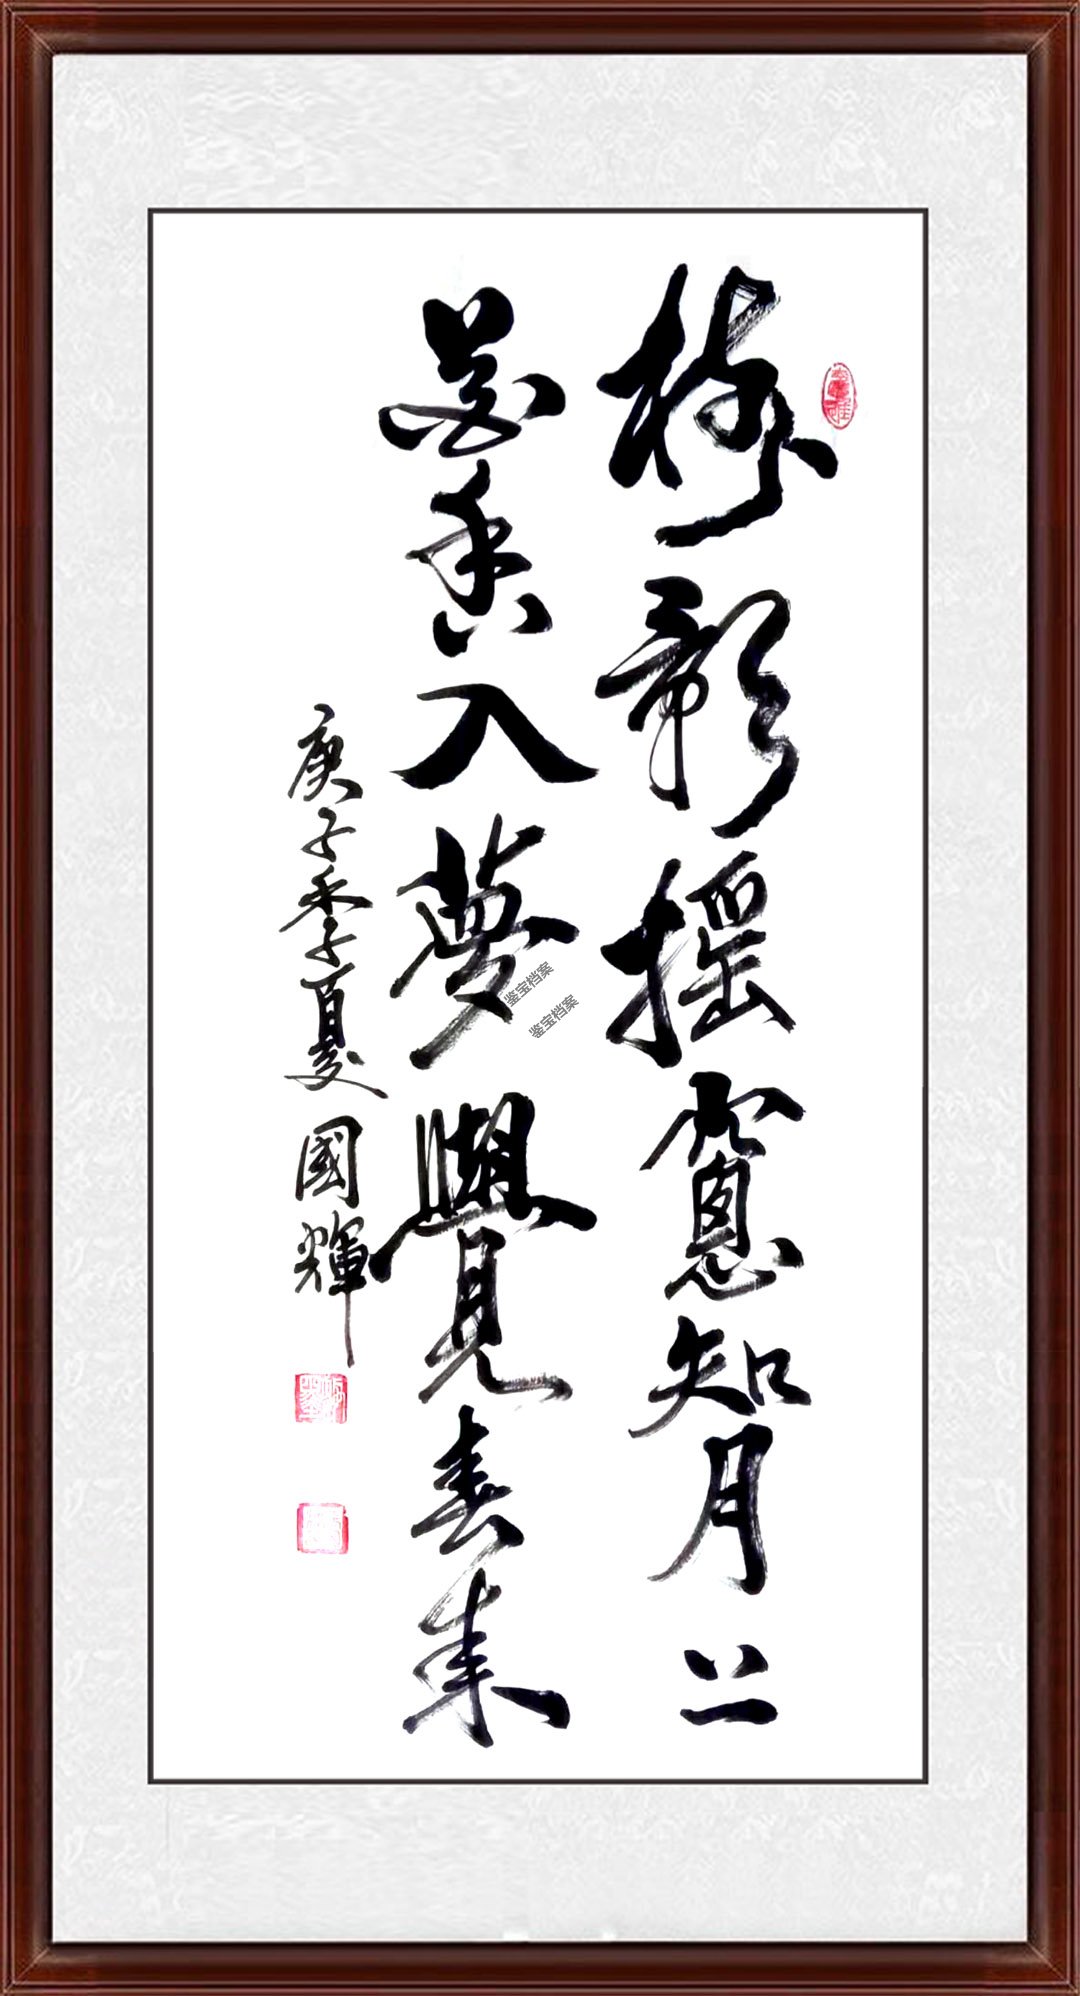 梅影摇窻知月上
花香入夢覺春来
庚子季夏國輝
鉴宝档案
鉴宝档案